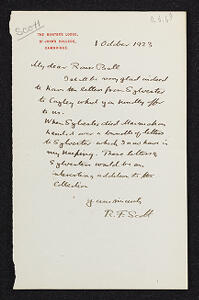 SCOTT
THE MASTER'S LODGE,
ST JOHN'S COLLEGE,
CAMBRIDGE.
1 October 1923
My dear Rouse Ball
I shall be very glad indeed
to have the letters from Sylvester
to Cayley which you kindly offer
to us.
When Sylvester died Macmahon
handed over a bundle of letters
to Sylvester which I now have in
my keeping. These letters of
Sylvesters would be an
interesting addition to the
Collection
Yours sincerely
R. F. Scott